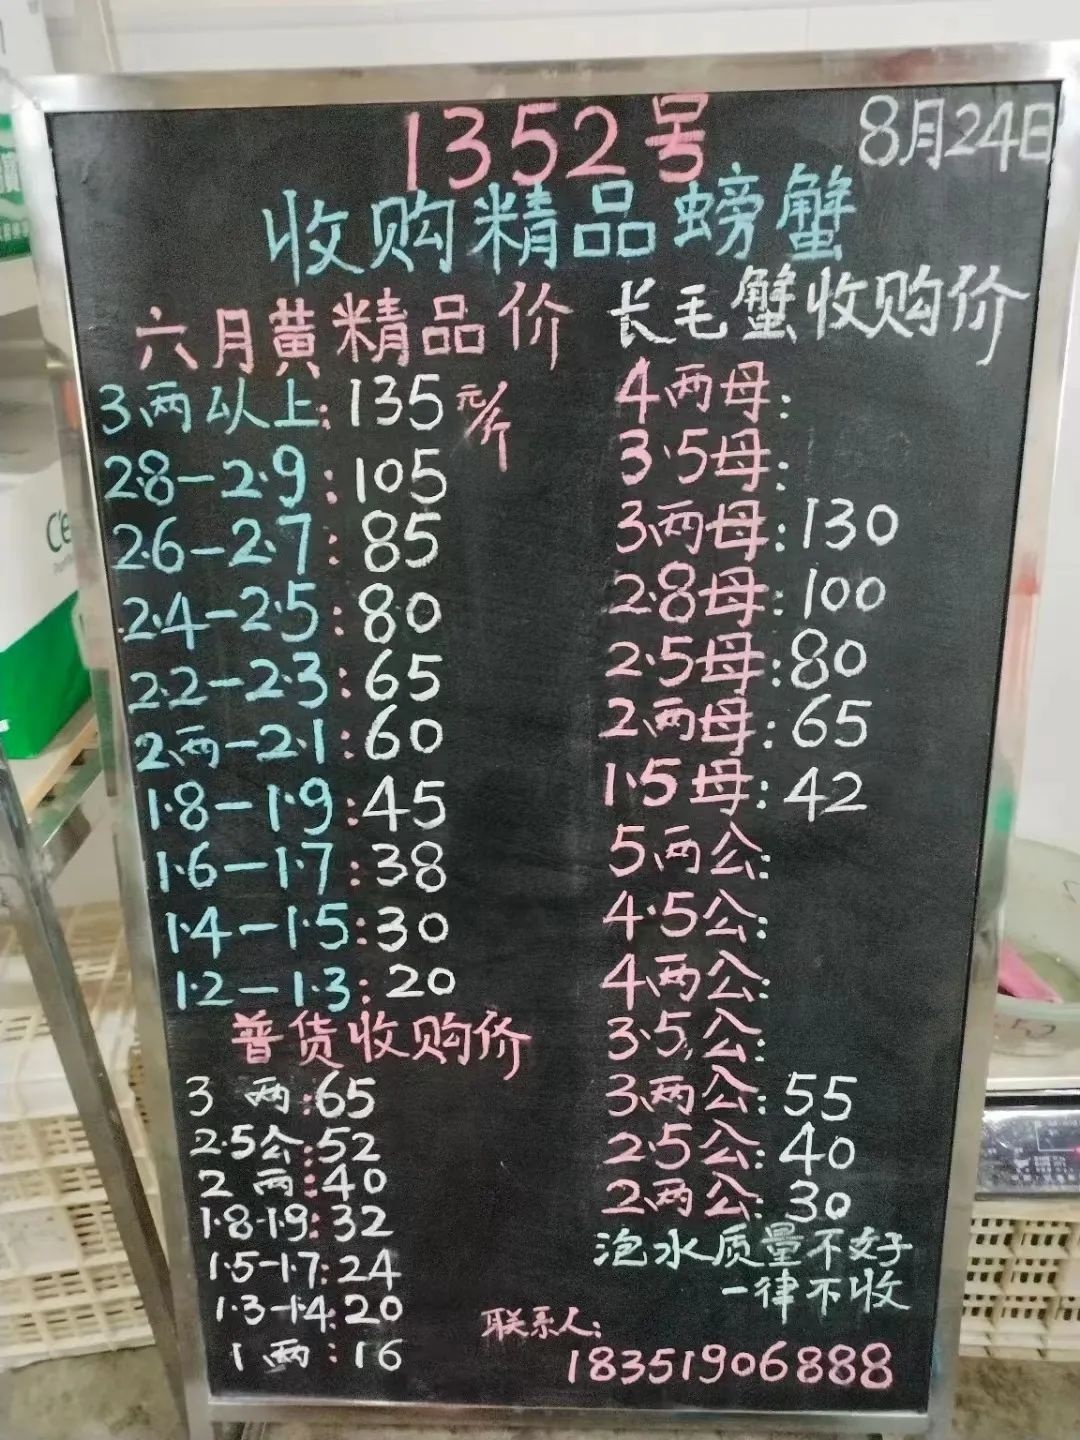 1352号
8月24日
收购精品螃蟹
六月黄精品价
3两以上:135元/斤
2.8-2.9:105
2.6-2.7:85
2.4-2.5:80
2.2-2.3:65
2两-2.1:60
1.8-1.9:45
1.6-1.7:38
1.4-1.5:30
1.2-1.3:20
普货收购价
3两:65
2.5公:52
2两:40
1.8-1.9:32
1.5-1.7:24
1.3-1.4:20
1两:16
长毛蟹收购价
4两母:
3.5母:
3两母:130
2.8母:100
2.5母:80
2两母:65
1.5母:42
5两公:
4.5公:
4两公:
3.5公:
3两公:55
2.5公:40
2两公:30
泡水质量不好
一律不收
联系人:
18351906888